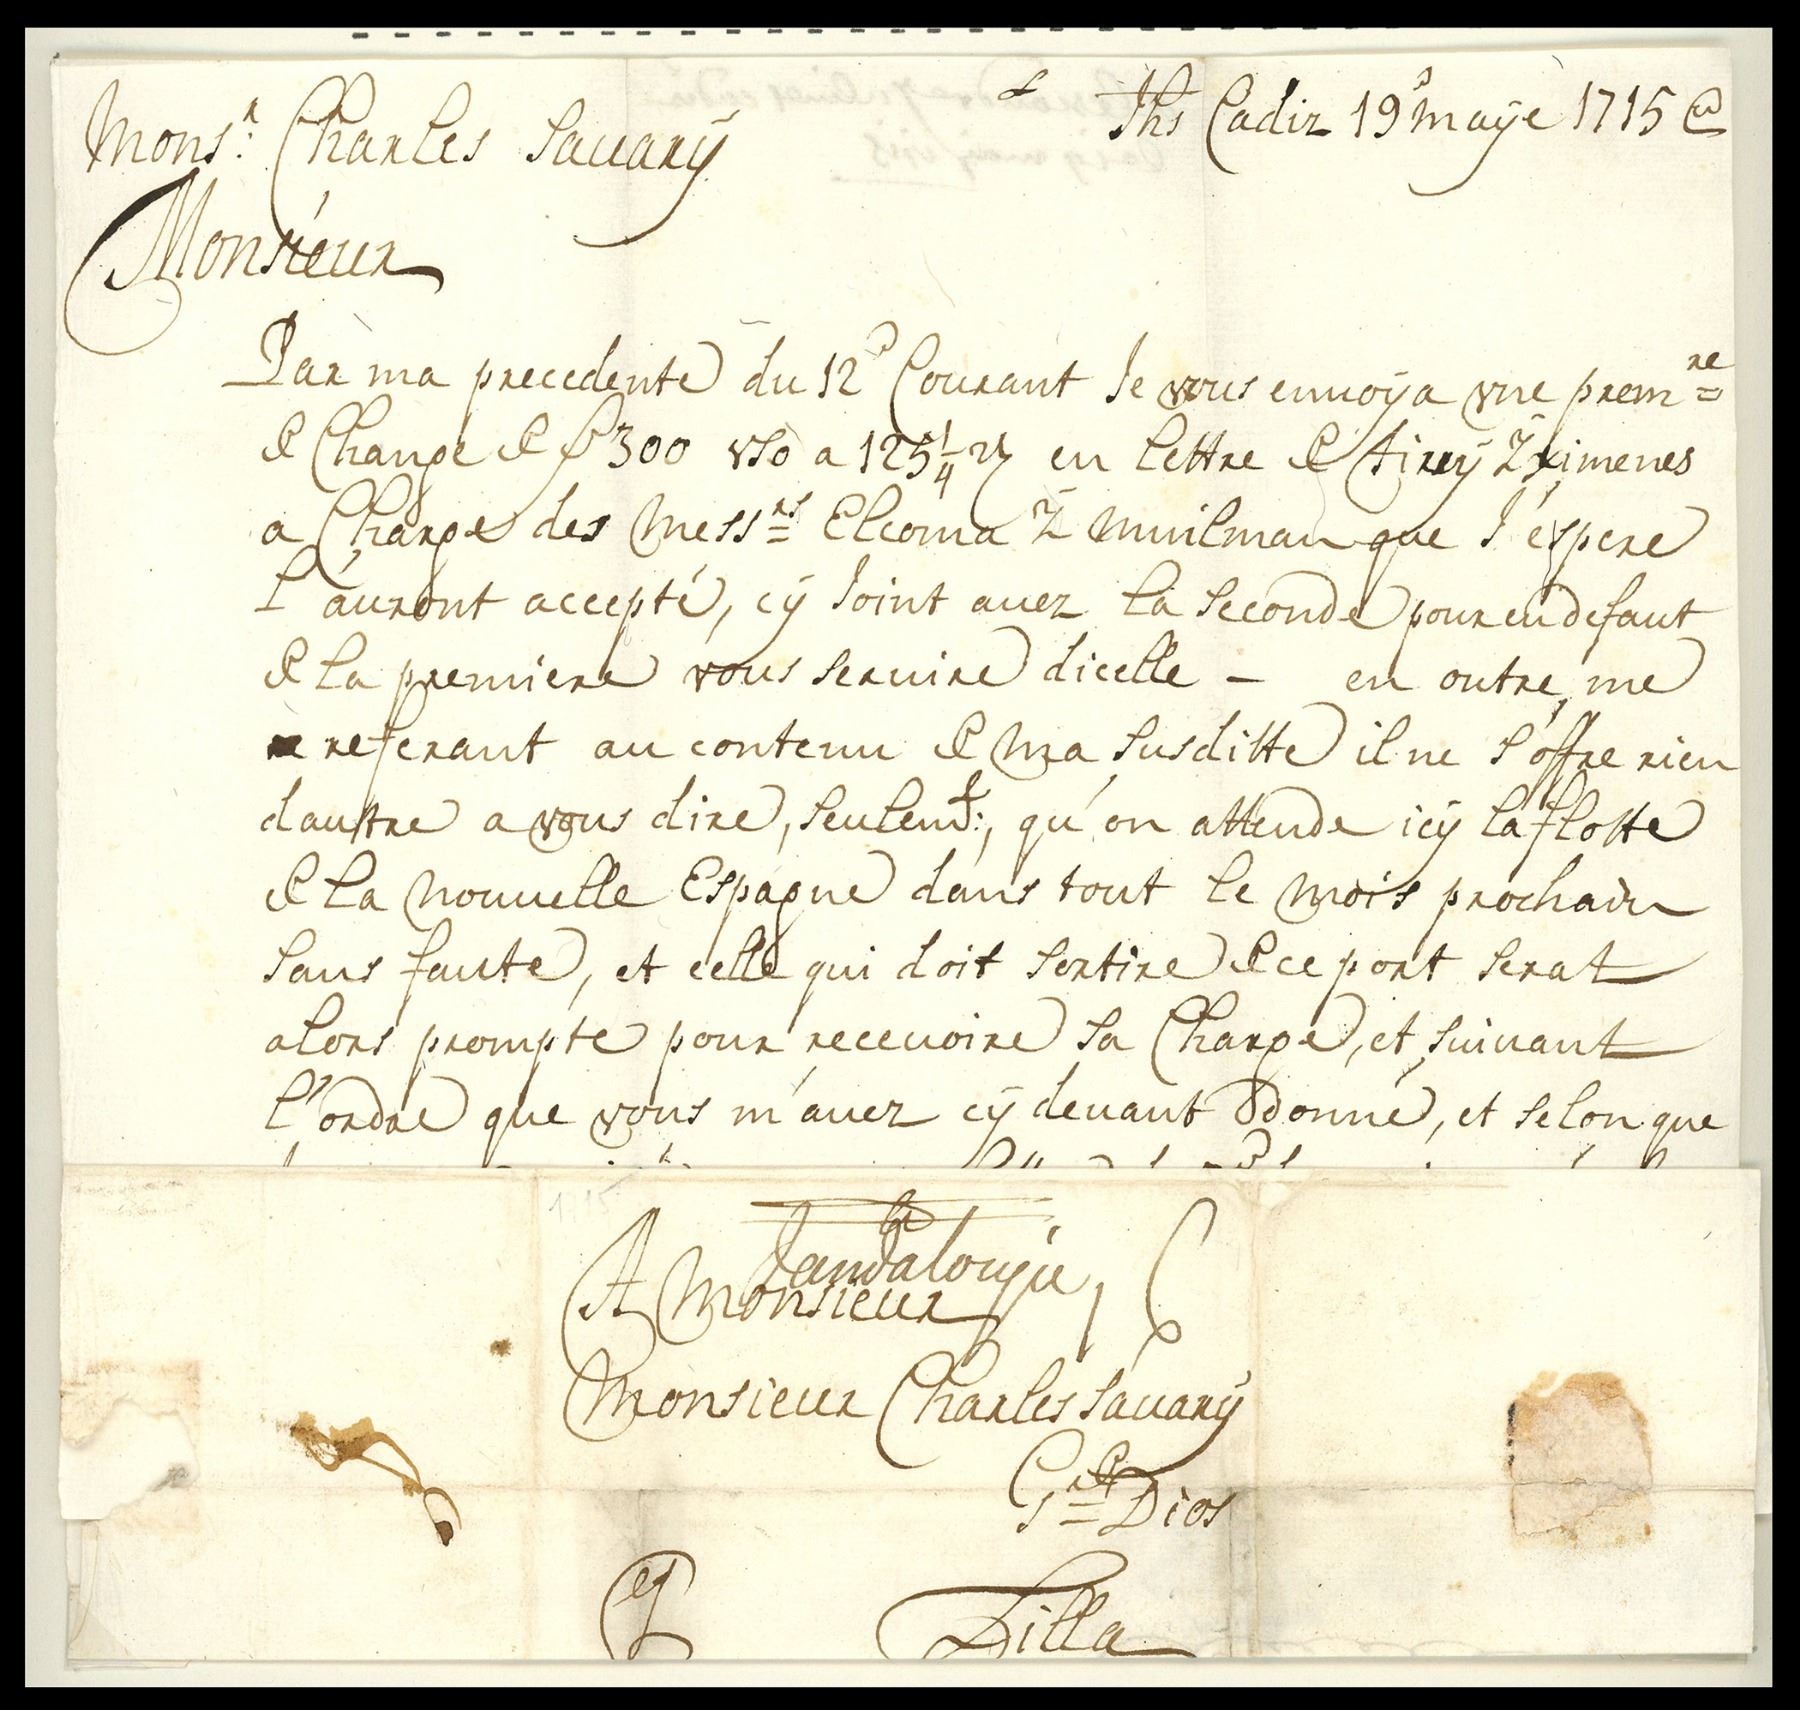 Jhs Cadiz 19 maÿe 1715
Mons.r Charles Sauarÿ
Monsieur
Par ma precedente du 12 Courant Je vous enuoÿa vne prem.re
de Change de 300 vso a 125 1/4 en lettre de Airey & Ximenes
a Charge des Mess.rs Elcoma & muilman que J'espere
l'auront accepté, cÿ Joint auez la Seconde pour en defaut
de la premiere vous Seruire dicelle – en outre me
referant au contenu de ma Susditte il ne s'offre rien
dautre a vous dire, Seulem.t, qu'on attende icÿ la flotte
de la nouuelle Espagne dans tout le mois prochain
Sans faute, et celle qui doit Sortire de ce port Serat
alors prompte pour receuoire Sa Charge, et Suiuant
l'ordre que vous m'auez cÿ deuant donné, et Selon que
A Monsieur
Monsieur Charles Sauarÿ
G.de Dios
Lilla